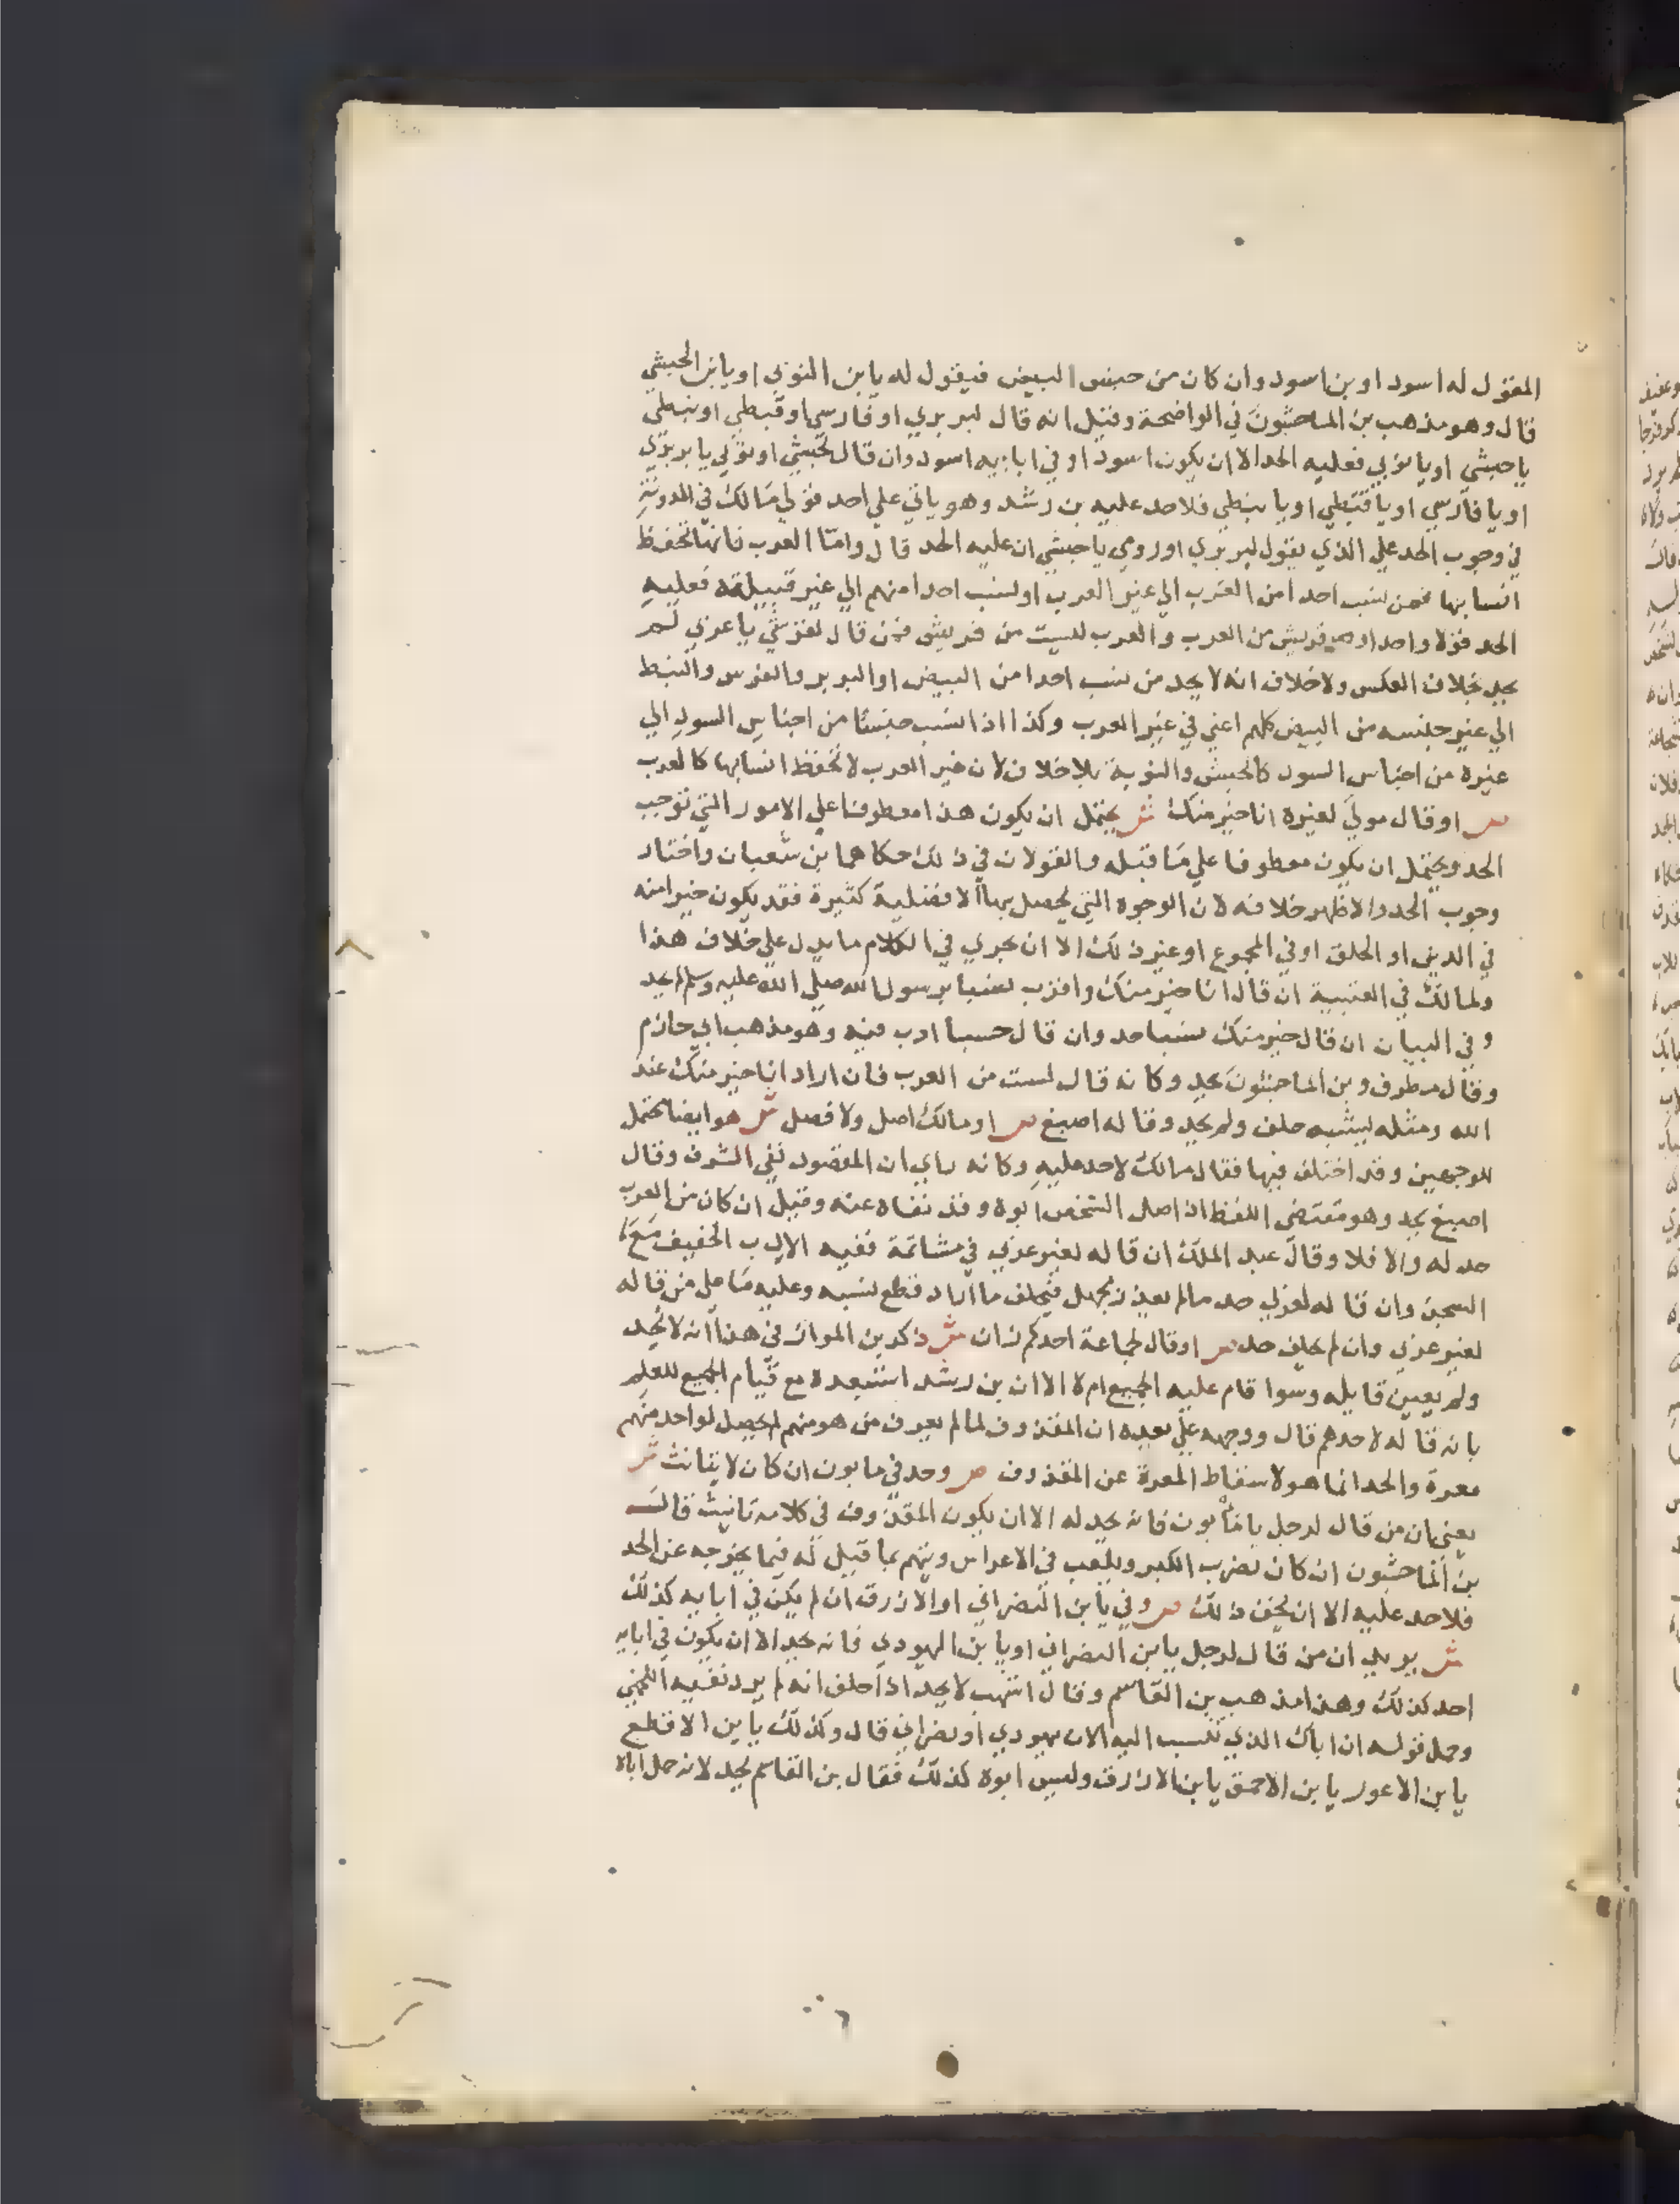 المقول له اسود او بن اسود وان كان من جنس البيض فيقول له يابن النوبي او يابن الحبشي
قال وهو مذهب بن الماجشون في الواضحة وقيل انه قال لبربري او فارسي او قبطي او نبطي
يا حبشي او يا نوبي فعليه الحد الا ان يكون اسود او في ابايه اسود وان قال لحبشي او نوبي يا بربري
او يا فارسي او يا قبطي او يا نبطي فلا حد عليه بن رشد وهو ياتي علي احد قولي مالك في المدونة
في وجوب الحد علي الذي يقول لبربري او رومي يا حبشي ان عليه الحد قال واما العرب فانها تحفظ
انسابها فمن نسب احدا من العرب الي غير العرب او نسب احدا منهم الي غير قبيلته فعليه
الحد قولا واحدا وقريش من العرب والعرب ليست من قريش فمن قال لقرشي يا عربي لم
يحد بخلاف العكس ولا خلاف انه لا يحد من نسب احدا من البيض او البربر والفرس والنبط
الي غير جنسه من البيض كلهم اعني في غير العرب وكذا اذا نسب جنسا من اجناس السود الي
غيره من اجناس السود كالحبش والنوبة بلا خلاف لان غير العرب لا تحفظ انسابها كالعرب
ص او قال مولي لغيره انا خير منك ش يحتمل ان يكون هذا معطوفا علي الامور التي توجب
الحد ويحتمل ان يكون معطوفا علي ما قبله والقولان في ذلك حكاهما بن شعبان واختار
وجوب الحد والاظهر خلافه لان الوجوه التي يحصل بها الافضلية كثيرة فقد يكون خيرا منه
في الدين او الخلق او في المجموع او غير ذلك الا ان يجري في الكلام ما يدل علي خلاف هذا
ولمالك في العتبية ان قال انا خير منك واقرب نسبا برسول الله صلي الله عليه وسلم يحد
وفي البيان ان قال خير منك نسبا حد وان قال حسبا ادب فيه وهو مذهب ابي حازم
وقال مطرف وبن الماجشون يحد وكانه قال لست من العرب فان اراد انا خير منك عند
الله ومثله يشبه حلف ولم يحد وقاله اصبغ ص او مالك اصل ولا فصل ش هو ايضا يحتمل
الوجهين وقد اختلف فيها فقال مالك لا حد عليه وكانه راي ان المقصود نفي الشرف وقال
اصبغ يحد وهو مقتضي اللفظ اذ اصل الشخص ابوه وقد نفاه عنه وقيل ان كان من العرب
حد له والا فلا وقال عبد الملك ان قاله لغير عربي في مشاتمة ففيه الادب الخفيف مع
السجن وان قاله لعربي حد ما لم يعذر بجهل فيحلف ما اراد قطع نسبه وعليه ما علي من قاله
لغير عربي وان لم يحلف حد ص او قال لجماعة احدكم زان ش ذكر بن المواز في هذا انه لا يحد
ولم يعين قايله وسوا قام عليه الجميع ام لا الا ان بن رشد استبعده مع قيام الجميع للعلم
بانه قاله لاحدهم قال ووجهه علي بعده ان المقذوف لما لم يعرف من هو منهم لم يحصل لواحد منهم
معرة والحد انما هو لاسقاط المعرة عن المقذوف ص وحد في مابون ان كان لا يتانث ش
يعني ان من قال لرجل يا مأبون فانه يحد له الا ان يكون المقذوف في كلامه تانيث قال
بن الماجشون ان كان يضرب الكبر ويلعب في الاعراس ويتهم بما قيل له فيما يخرجه عن الحد
فلا حد عليه الا ان يحقق ذلك ص وفي يا بن النصراني او الازرق ان لم يكن في ابايه كذلك
ش يريد ان من قال لرجل يا بن النصراني او يا بن اليهودي فانه يحد الا ان يكون في ابايه
احد كذلك وهذا مذهب بن القاسم وقال اشهب لا يحد اذا حلف انه لم يرد نفيه اللخمي
ومحمل قوله ان اباك الذي تنسب اليه الان يهودي او نصراني قال وكذلك يا بن الاقطع
يا بن الاعور يا بن الاحمق يا بن الازرق وليس ابوه كذلك فقال بن القاسم يحد لانه حمل اباه